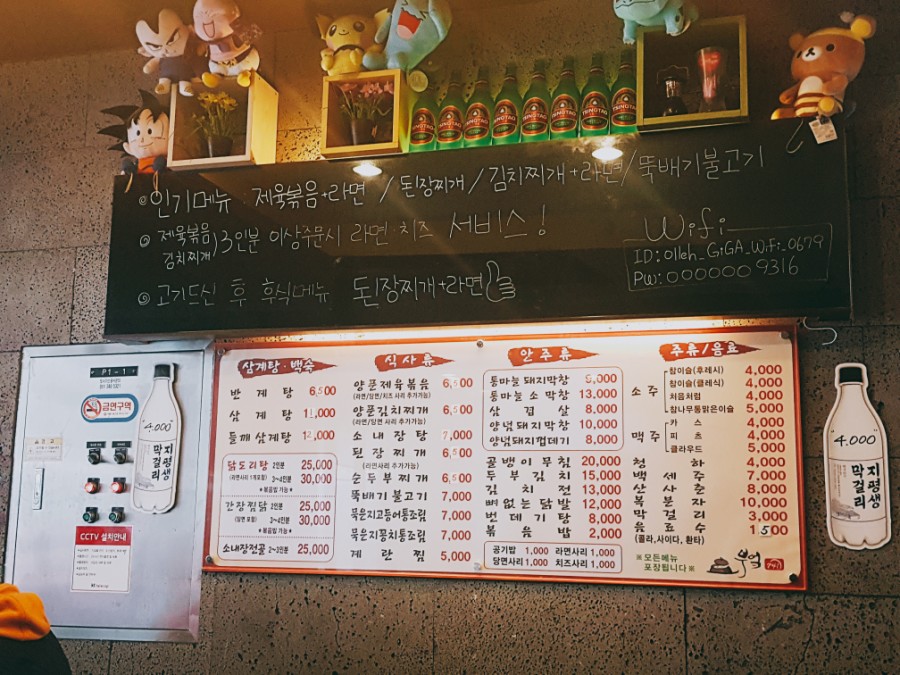 TSINGTAO TSINGTAO TSINGTAO TSINGTAO TSINGTAO TSINGTAO TSINGTAO TSINGTAO
인기메뉴 : 제육볶음+라면 / 된장찌개 / 김치찌개+라면 / 뚝배기불고기
제육볶음
김치찌개
) 3인분 이상주문시 라면·치즈 서비스!
고기드신 후 후식메뉴 된장찌개+라면
Wifi
ID: olleh_GiGA_WiFi_0679
PW: 000000 9316
P1-1
금연구역
CCTV 설치안내
4,000
지평생
막걸리
삼계탕·백숙
반계탕 6,500
삼계탕 11,000
들깨삼계탕 12,000
닭도리탕 2인분 25,000
3~4인분 30,000
*볶음밥 가능*
간장찜닭 2인분 25,000
(당면 포함) 3~4인분 30,000
*볶음밥 가능*
소내장전골 2~3인분 25,000
식사류
양푼제육볶음 6,500
(라면/당면/치즈 사리 추가가능)
양푼김치찌개 6,500
(라면/당면 사리 추가가능)
소내장탕 7,000
된장찌개 6,500
(라면사리 추가가능)
순두부찌개 6,500
뚝배기불고기 7,000
묵은지고등어통조림 7,000
묵은지꽁치통조림 7,000
계란찜 5,000
안주류
통마늘돼지막창 9,000
통마늘소막창 13,000
삼겹살 8,000
양념돼지막창 10,000
양념돼지껍데기 8,000
골뱅이무침 20,000
두부김치 15,000
김치전 13,000
뼈없는닭발 12,000
번데기탕 8,000
볶음밥 2,000
공기밥 1,000 라면사리 1,000
당면사리 1,000 치즈사리 1,000
주류/음료
소주
참이슬(후레시) 4,000
참이슬(클래식) 4,000
처음처럼 4,000
참나무통맑은이슬 5,000
맥주
카스 4,000
피츠 4,000
클라우드 5,000
청하 4,000
백세주 7,000
산사춘 8,000
복분자 10,000
막걸리 3,000
음료수 1,500
(콜라,사이다,환타)
※모든메뉴
포장됩니다※
부엌
4,000
지평생
막걸리